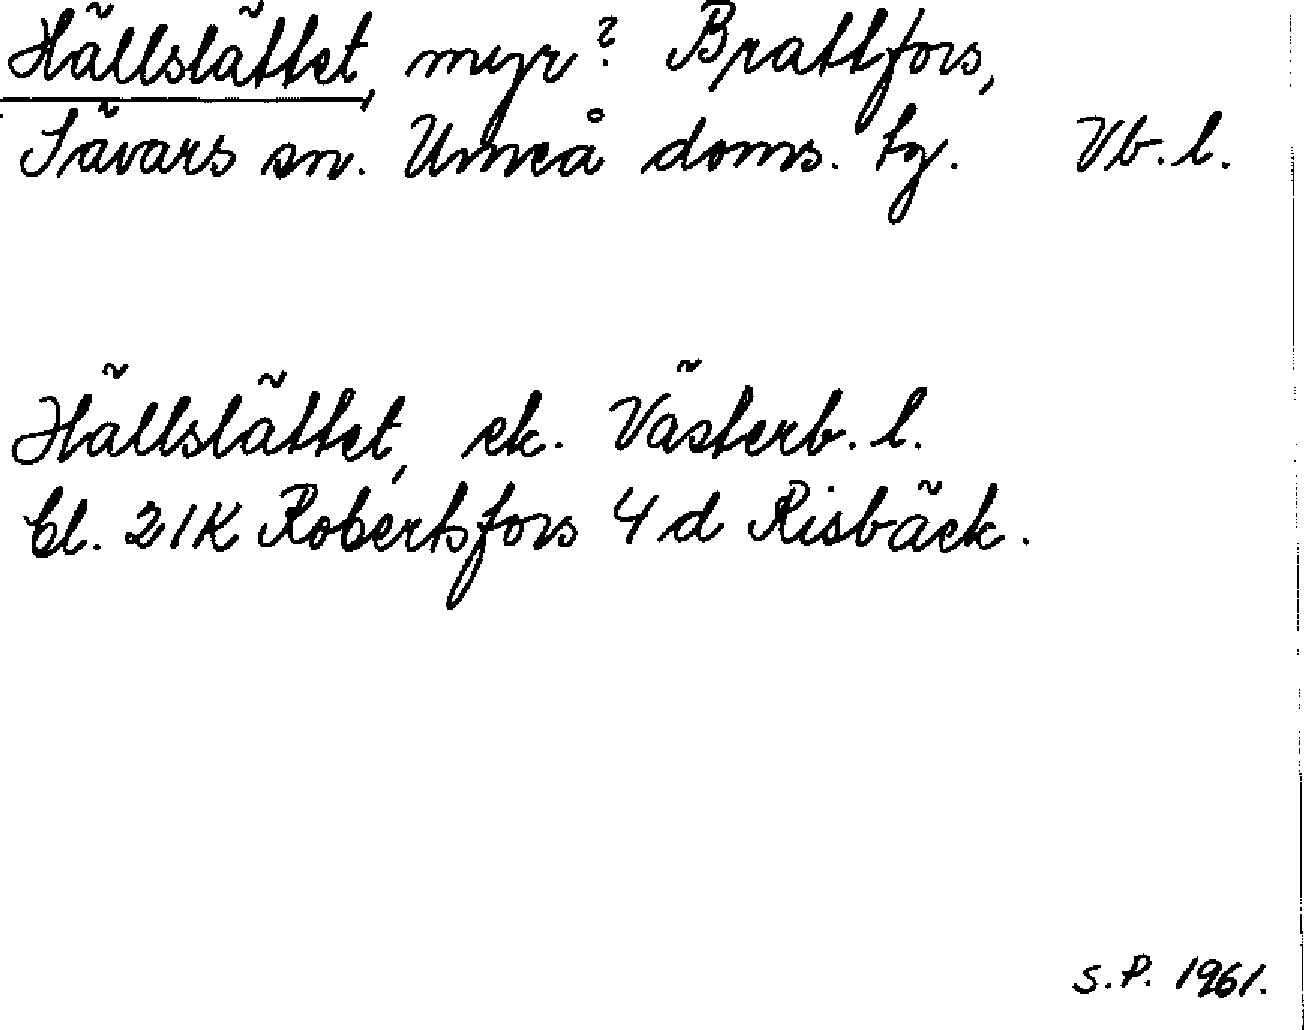 Hällslättet, myr? Brattfors,
Sävars sn. Umeå doms. tg. Vb. l.
Hällslättet, ek. Västerb. l.
bl. 21K Robertsfors 4 d Risbäck.
S.P. 1961.